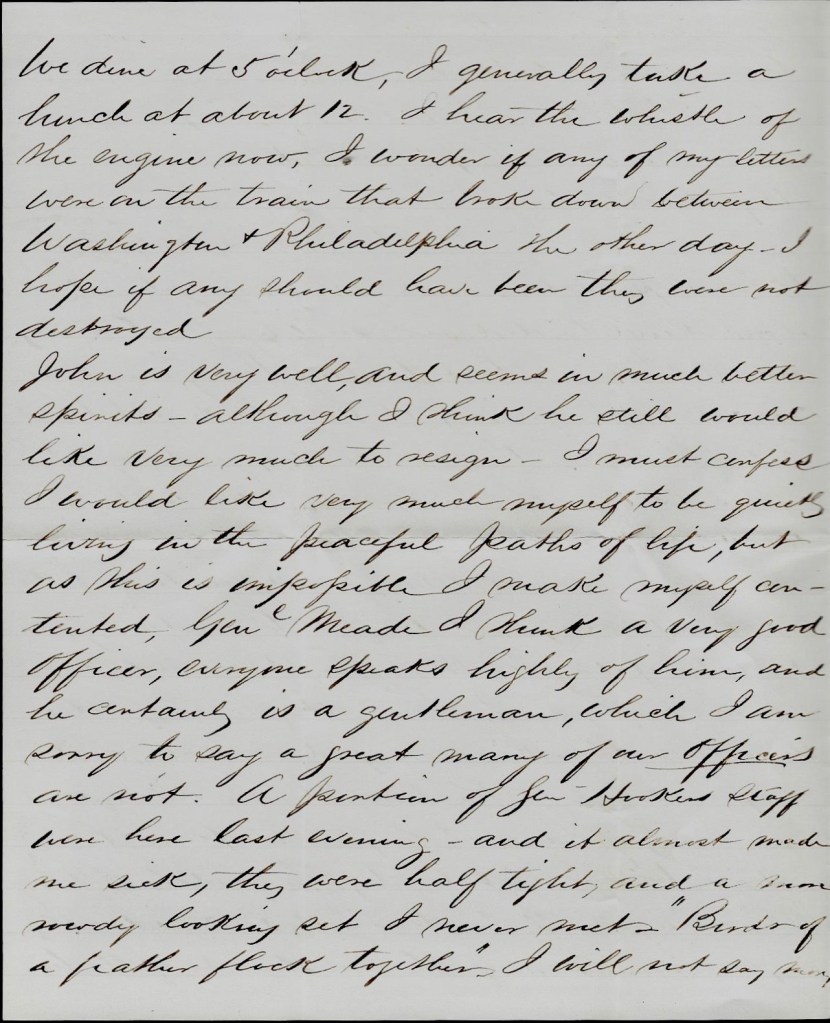 We dine at 5 o'clock, I generally take a
lunch at about 12. I hear the whistle of
the engine now, I wonder if any of my letters
were on the train that broke down between
Washington & Philadelphia the other day - I
hope if any should have been they were not
destroyed
John is very well, and seems in much better
spirits - although I think he still would
like very much to resign - I must confess
I would like very much myself to be quietly
living in the peaceful paths of life, but
as this is impossible I make myself con-
tented, Genl Meade I think a very good
officer, everyone speaks highly of him, and
he certainly is a gentleman, which I am
sorry to say a great many of our officers
are not. A portion of Gen Hookers staff
were here last evening - and it almost made
me sick, they were half tight, and a more
rowdy looking set I never met - "Birds of
a feather flock together", I will not say more,